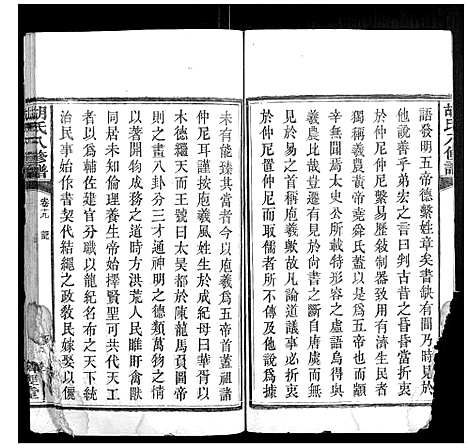 胡氏八修譜
語發明五帝德繫姓章矣書缺有間乃時時見於
他說善乎弟宏之言曰判古昔之昏昏當折衷
於仲尼仲尼繫易歷敘制器致用有以濟生民
幸無聞焉太史公所載特形容之虛語烏可以
羲農羲農黃帝堯舜氏蓋以是為五帝也而顓
義農比夫孔子所已見於尚書之斷自
見於易之首稱庖羲歟故凡論道議事必折衷
於仲尼仲尼而取信儒者所及傳及他說為據
未有能臻其當者今以庖羲為五帝首蓋祖諸
仲尼耳謹按庖羲風姓生於成紀母曰華胥以
木德繼天而王號曰太昊都於陳龍馬負圖帝
則之畫八卦分三才通神明之德類萬物之情
以著開物成務之道時方洪荒人民雖盱禽獸
同居未知倫理養生帝始擇賢聖可共代天工
者以為輔佐建官分職以龍紀名布之天下統
治民事始作書契代結繩之政教民嫁娶以儷
胡氏八修譜
卷之九 記